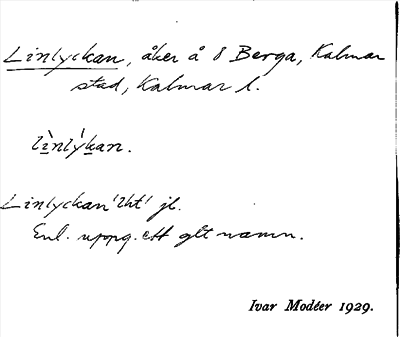 Linlyckan, åker å 8 Berga, Kalmar
stad, Kalmar l.
lìnlýkan.
Linlyckan 'lht' jl.
Enl. uppg. ett glt namn.
Ivar Modéer 1929.